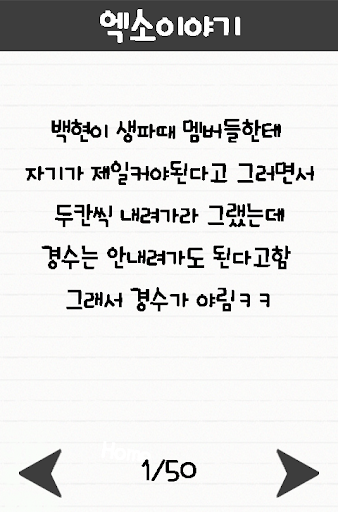 엑소이야기
백현이 생파때 멤버들한테
자기가 제일커야된다고 그러면서
두칸씩 내려가라 그랬는데
경수는 안내려가도 된다고함
그래서 경수가 야림ㅋㅋ
Home
1/50